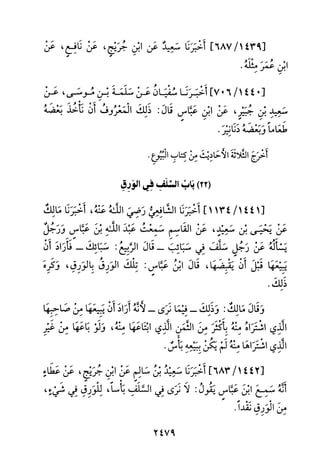 [٦٨٧/١٤٣٩] أَخْبَرَنَا سَعِيدٌ عَنِ ابْنِ جُرَيْجٍ، عَنْ نَافِعٍ، عَنْ
ابْنِ عُمَرَ مِثْلُهُ.
[٧٠٦/١٤٤٠] أَخْبَرَنَا سُفْيَانُ عَنْ سَلَمَةَ بْنِ مُوسَى، عَنْ
سَعِيدِ بْنِ جُبَيْرٍ، عَنِ ابْنِ عَبَّاسٍ قَالَ: ذَلِكَ الْمَعْرُوفُ أَنْ نَأْخُذَ بَعْضَهُ
طَعَاماً وَبَعْضَهُ دَنَانِيْرَ.
أَخْرَجَ الثَّلاثَةَ الأَحَادِيْثَ مِنْ كِتابِ الْبُيُوعِ.
(٢٢) بَابُ السَّلَفِ فِي الوَرِقِ
[١١٣٤/١٤٤١] أَخْبَرَنَا الشَّافِعِيُّ رَضِيَ اللهُ عَنْهُ، أَخْبَرَنَا مَالِكٌ
عَنْ يَحْيَى بْنِ سَعِيْدٍ، عَنْ القَاسِمِ سَمِعْتُ عَبْدَ اللهِ بْنَ عَبَّاسٍ وَرَجُلٌ
يَسْأَلُهُ عَنْ رَجُلٍ سَلَّفَ فِي سَبَائِبَ ــ قَالَ الرَّبِيعُ: سَبَائِكَ ــ فَأَرَادَ أَنْ
يَبِيْعَهَا قَبْلَ أَنْ يَقْبِضَهَا، قَالَ ابْنُ عَبَّاسٍ: تِلْكَ الوَرِقُ بِالوَرِقِ، وَكَرِهَ
ذَلِكَ.
وَقَالَ مَالِكٌ: وَذَلِكَ ــ فِيْمَا نَرَى ــ لأَنَّهُ أَرَادَ أَنْ يَبِيعَهَا مِنْ صَاحِبِهَا
الَّذِي اشْتَرَاهُ مِنْهُ بِأَكْثَرَ مِنَ الثَّمَنِ الَّذِي ابْتَاعَهَا مِنْهُ، وَلَوْ بَاعَهَا مِنْ غَيْرِ
الَّذِي اشْتَرَاهَا مِنْهُ لَمْ يَكُنْ بِبَيْعِهِ بَأْسٌ.
[٦٨٣/١٤٤٢] أَخْبَرَنَا سَعِيْدُ بْنُ سَالِمٍ عَنْ ابْنِ جُرَيْجٍ، عَنْ عَطَاءٍ
أَنَّهُ سَمِعَ ابْنَ عَبَّاسٍ يَقُولُ: لَا نَرَى فِي السَّلَفِ بَأْساً، لِلْوَرِقِ فِي شَيْءٍ،
مِنَ الْوَرِقِ نَقْداً.
٢٤٧٩